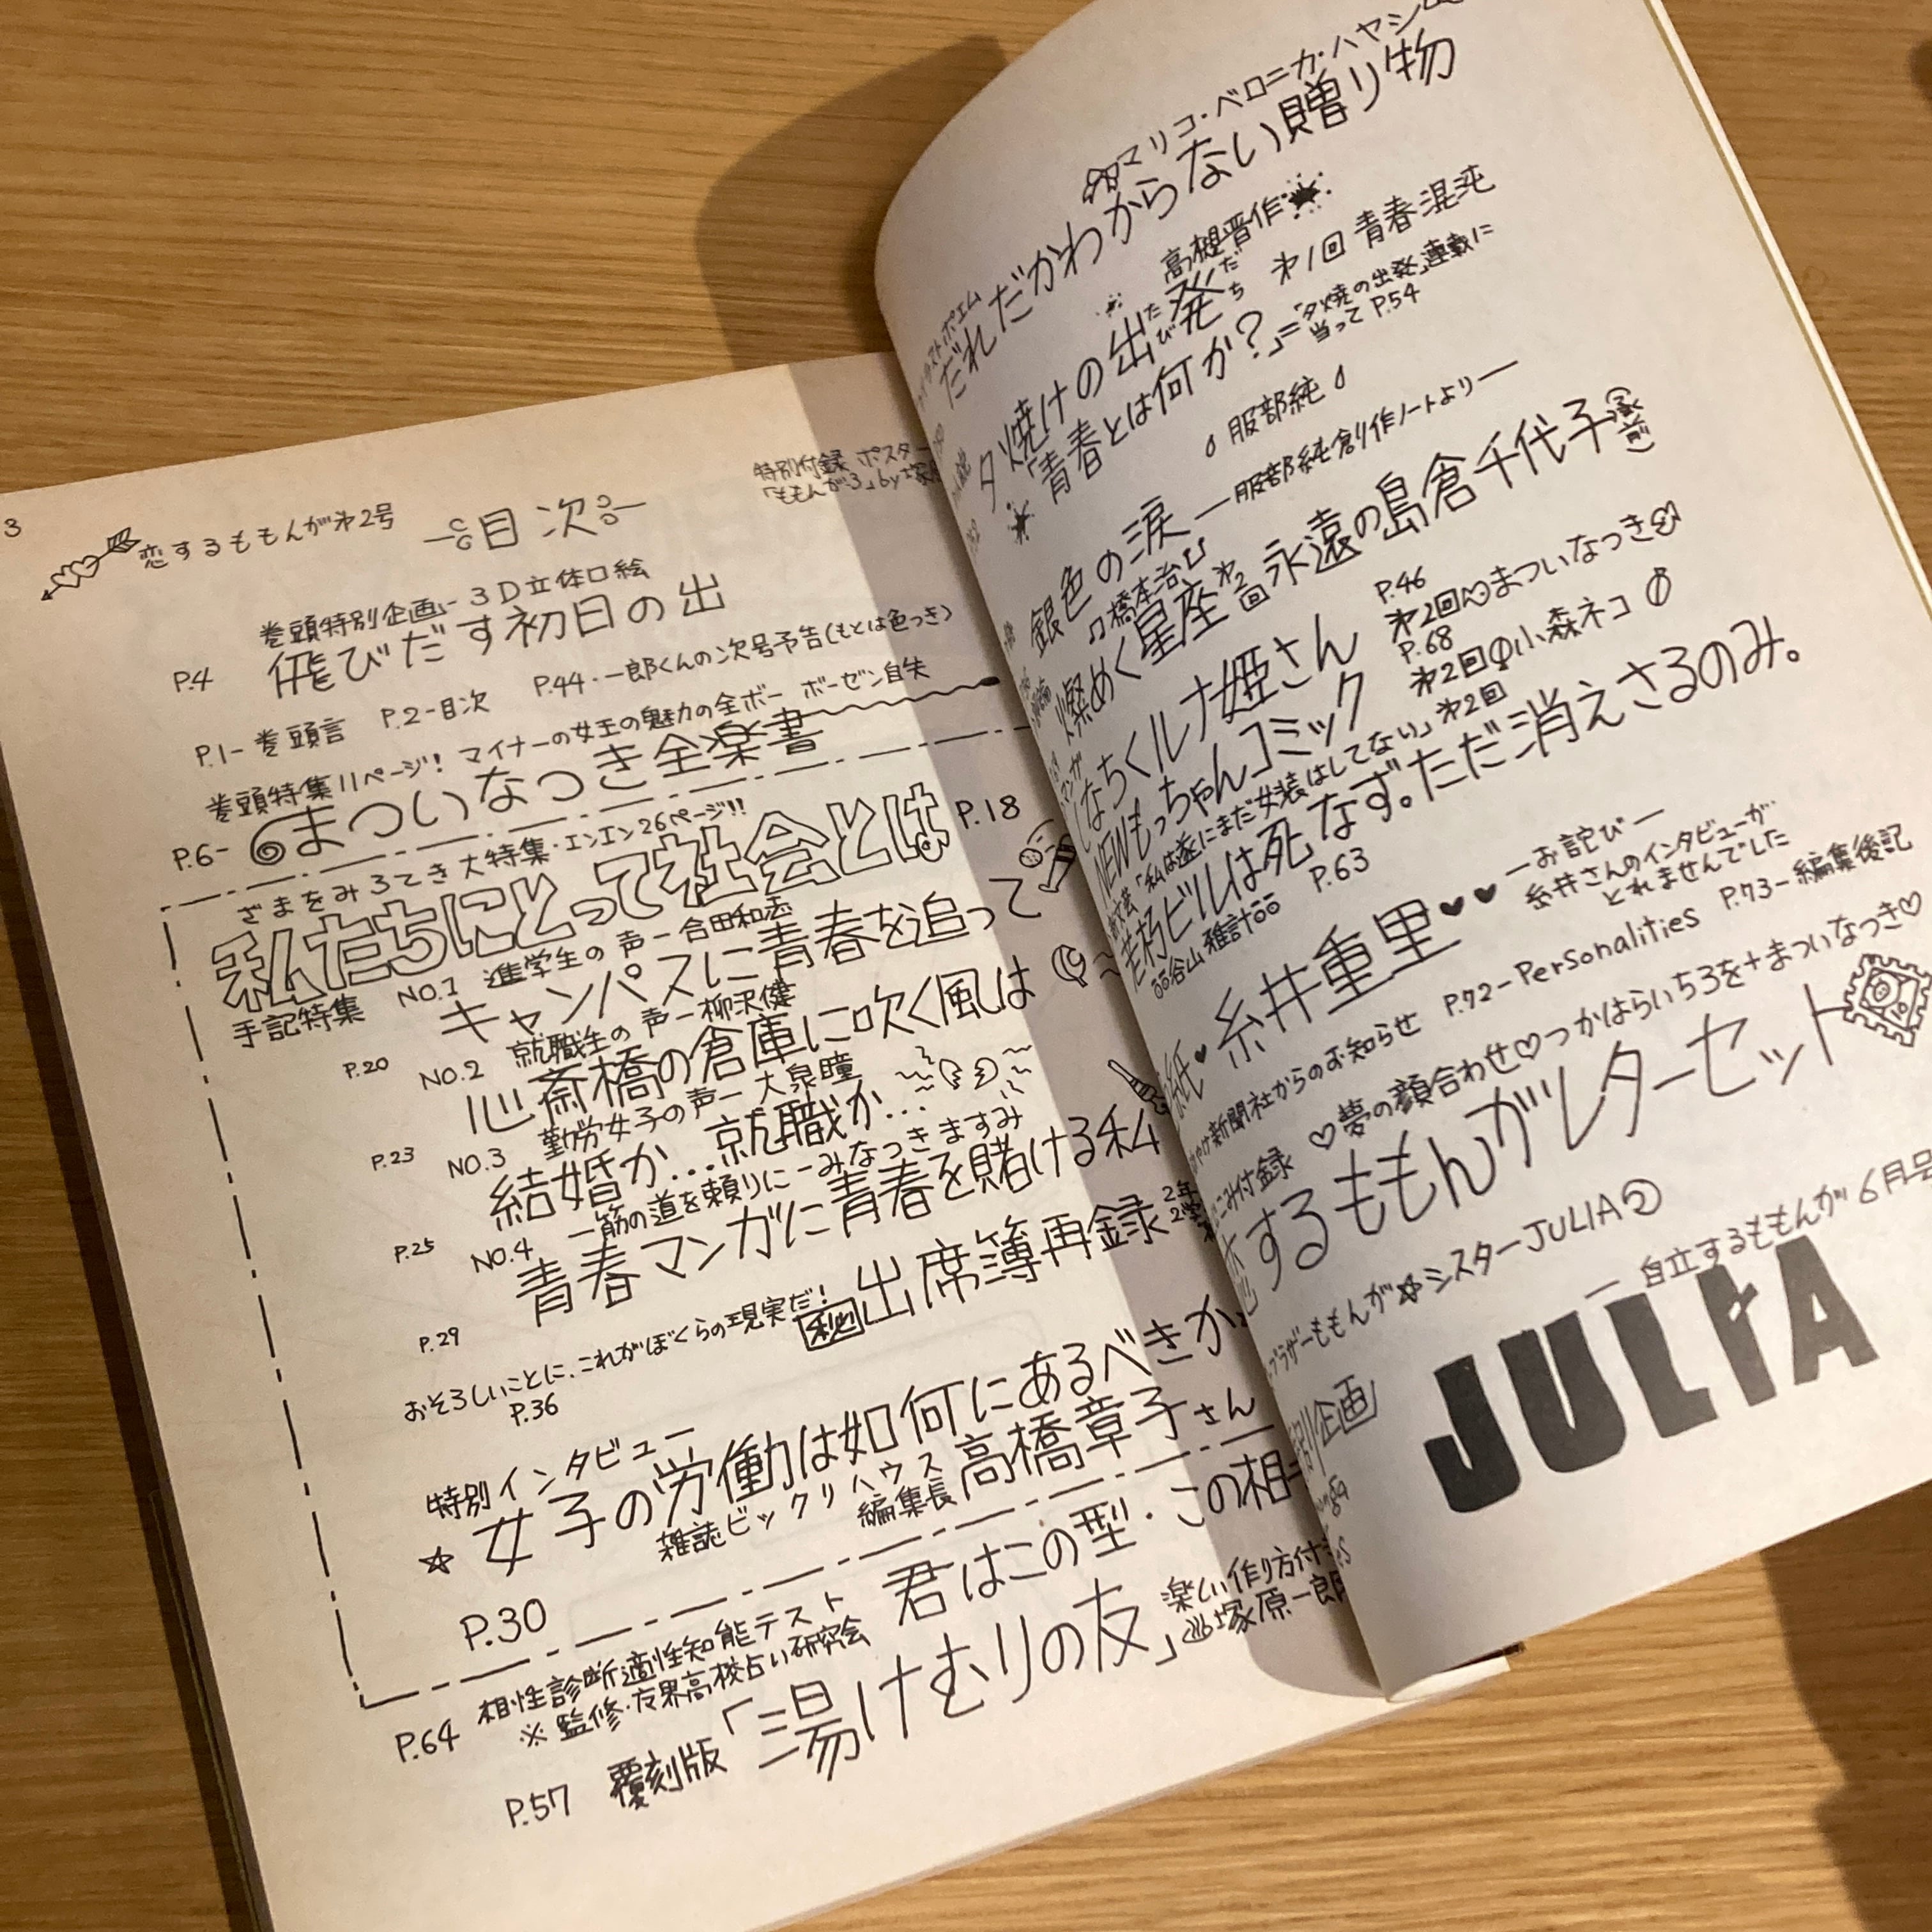 3
恋するももんが㐧2号
目次
特別付録 ポスター
「ももんが3」by塚原
巻頭特別企画-3D立体口絵
P.4 飛びだす初日の出
P.1-巻頭言 P.2-目次 P.44.一郎くんの次号予告(もとは色つき)
巻頭特集11ページ! マイナーの女王の魅力の全ボー ボーゼン自失
P.6- まついなつき全楽書
ざまをみろてき大特集・エンエン26ページ!!
私たちにとって社会とは P.18
手記特集 NO.1 進学生の声-合田和丞
キャンパスに青春を追って
P.20 NO.2 就職生の声-柳沢健
心斎橋の倉庫に吹く風は
P.23 NO.3 勤労女子の声-大泉瞳
結婚か…就職か…
P.25 NO.4 一筋の道を頼りに-みなつきますみ
青春マンガに青春を賭ける私
P.29 おそろしいことに、これがぼくらの現実だ!
P.36 ㊙出席簿再録
特別インタビュー
☆女子の労働は如何にあるべきか
雑誌ビックリハウス
編集長 高橋章子さん
P.30
P.64 相性診断適性知能テスト 君はこの型・この相
※監修・友界高校占い研究会
P.57 覆刻版「湯けむりの友」楽しい作り方付
塚原一郎
マリコ・ベロニカ・ハヤシ
イラストポエム だれだかわからない贈り物
高樹晋作
夕焼けの出発 たびだち 㐧1回 青春混沌
「青春とは何か?」=「夕焼の出発」連載に
当って P.54
服部純
銀色の涙 ―服部純創作ノートより―
♫橋本治
燦めく星座 㐧2回 永遠の島倉千代子(前)
マンガ しなちくルナ姫さん P.46 㐧2回 まついなつき
NEWもっちゃんコミック P.68 㐧2回 小森ネコ
「私は遂にまだ女装はしてない」㐧2回
老朽ビルは死なず。ただ消えさるのみ。
谷山雅計 P.63
―お詫び―
糸井重里♥♥ 糸井さんのインタビューが
とれませんでした
新聞社からのお知らせ P.72-Personalities P.73-編集後記
付録 ♡夢の顔合わせ♡つかはらいちろを+まついなつき♡
恋するももんがレターセット
ブラザーももんが☆シスターJULIA②
― 自立するももんが6月号
特別企画 JULIA